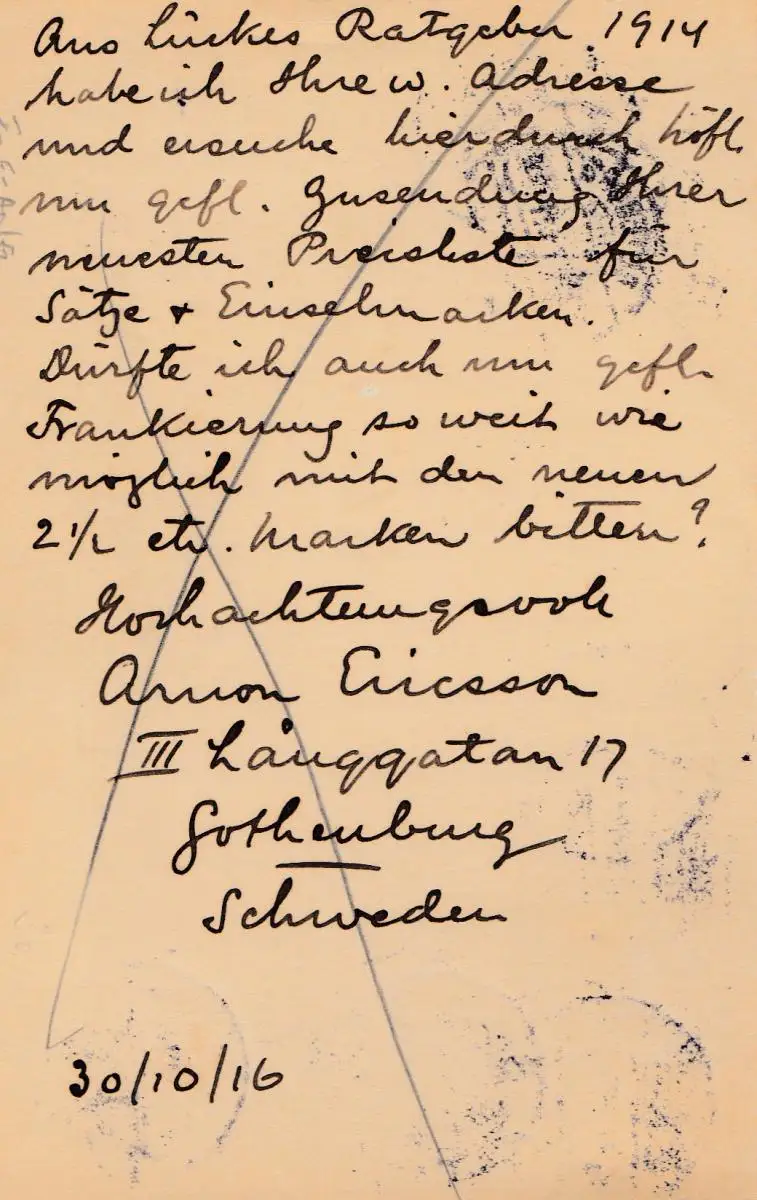 Aus Lückes Ratgeber 1914
habe ich Ihre w. Adresse
und ersuche hierdurch höfl.
um gefl. Zusendung Ihrer
neuesten Preisliste für
Sätze + Einzelmarken.
Dürfte ich auch um gefl.
Frankierung so weit wie
möglich mit den neuen
2 1/2 etc. Marken bitten?
Hochachtungsvoll
Arnon Ericsson
III Långgatan 17
Gothenburg
Schweden
30/10/16